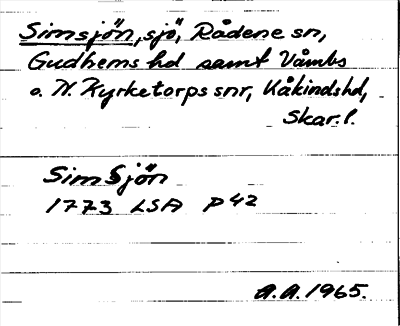 Simsjön, sjö, Rådene sn,
Gudhems hd samt Våmbs
o. N. Kyrketorps snr, Kåkinds hd,
Skar. l.
Sim Sjön
1773 LSA P42
A.A. 1965.